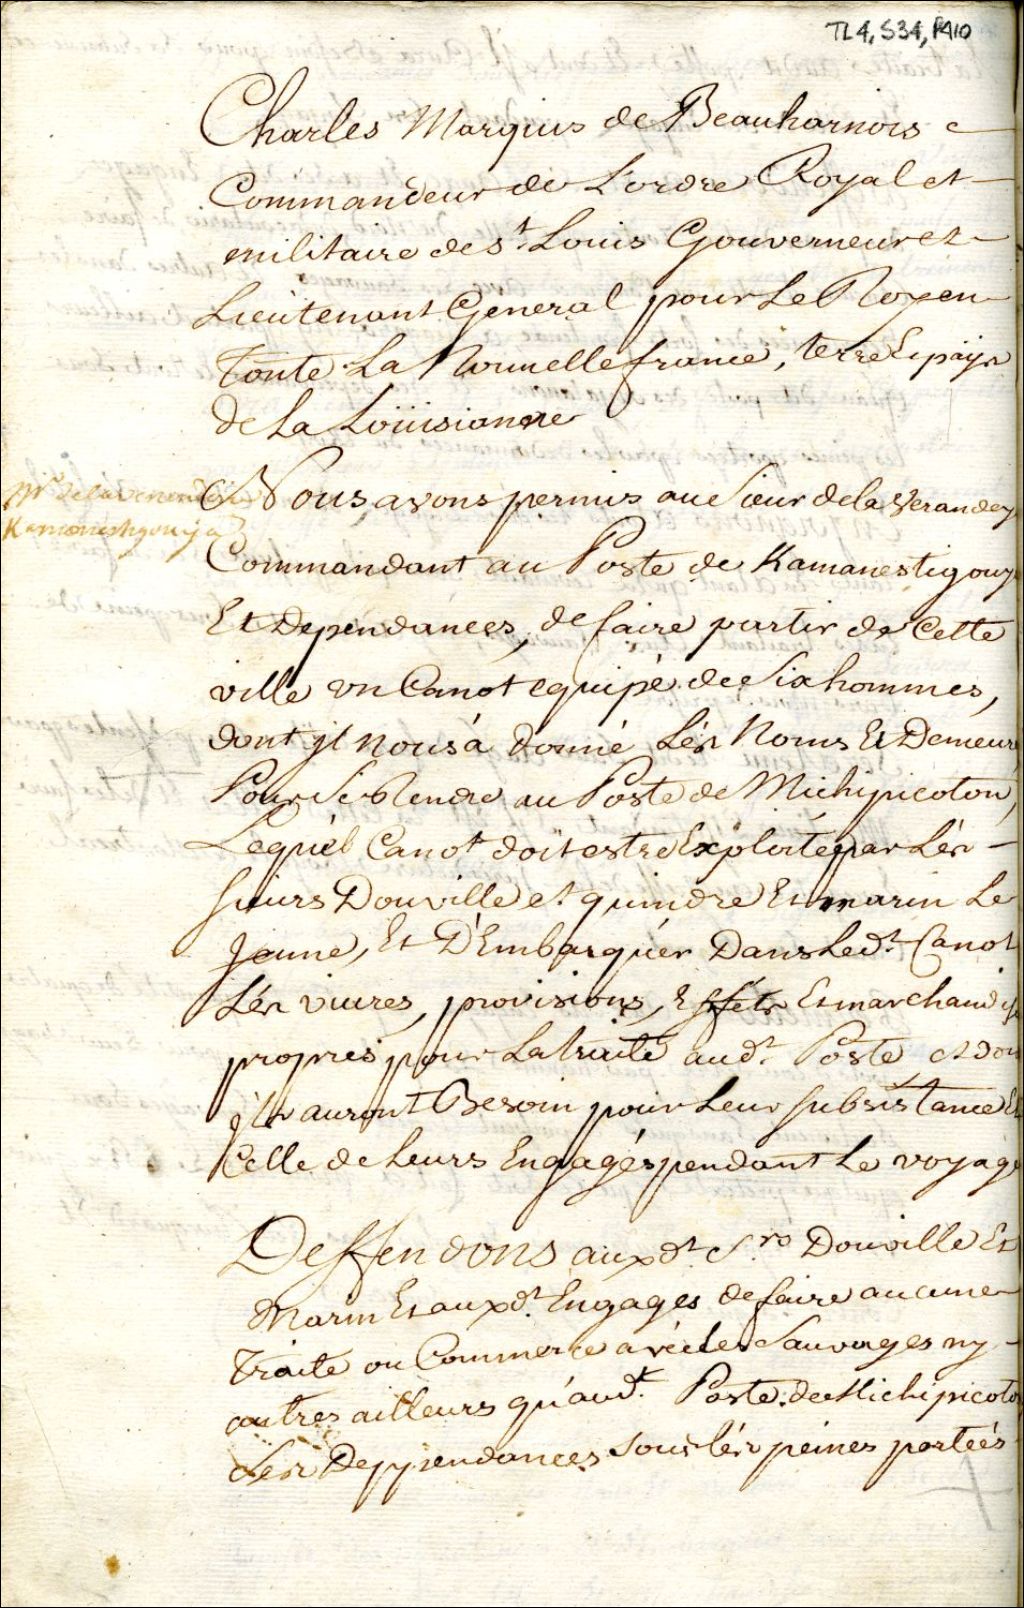 TL4, S34, P410
Charles Marquis de Beauharnois
Commandeur de L'ordre Royal et
militaire de st. Louis Gouverneur et
Lieutenant General pour Le Roy en
Toute La Nouvelle france, terre Et païs
de La Loüisianne
Mr. de la verendrie
Nous, avons permis au Sieur de la Verandry
Commandant au Poste de Kamanestigouy
Et Dependances, de faire partir de Cette
ville un Canot equipé de Six hommes,
dont jl nous à donné Lés Noms Et Demeure
Pour Se Rendre au Poste de Michipicoton,
Lequél Canot doit estre Exploité par Lés
Sieurs Douville et quindre Et marin Le
Jeune, Et D'Embarquér Dans Ledt. Canot
Lés vivres, provisions, Effets Et marchandis
propres pour La traite audt. Poste et don
jls auront Besoin pour Leur subsistance Et
Celle de Leurs Engagés pendant Le voyage
Deffendons auxdt. Srs Douville Et
Marin Et auxdt. Engages de faire aucune
Traite ou Commerce avéc les Sauvages ny
autres ailleurs qu'audt. Poste de Michipicoto
Les Deppendances sous lés peines porteés